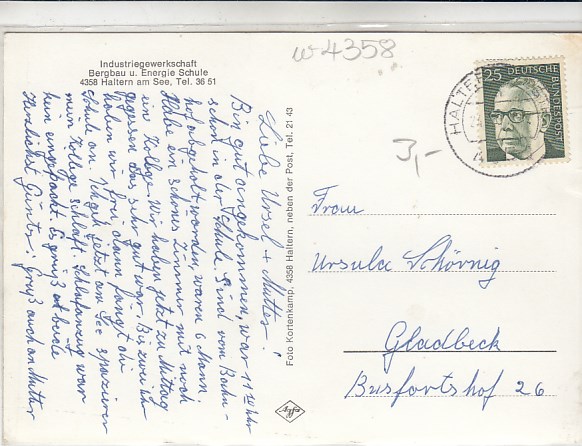 w 4358
Industriegewerkschaft
Bergbau u. Energie Schule
4358 Haltern am See, Tel. 36 51
Liebe Ursel + Mutter!
Bin gut angekommen, war 11 00 Uhr
schon in der Schule. Sind vom Bahn-
hof abgeholt worden, waren 6 Mann.
Habe ein schönes Zimmer mit noch
ein Kollege. Wir haben jetzt zu Mittag
gegessen das sehr gut war. Bis zwei Uhr
haben wir frei dann fängt die
Schule an. Ich geh jetzt am See spazieren
mein Kollege schläft. Schlafanzug war
kein eingepackt. Es grüßt euch beide
Herzlichst Günter. Gruß auch an Mutter
Foto Kortenkamp, 4358 Haltern, neben der Post, Tel. 21 43
Agfa
HALTERN
25 DEUTSCHE BUNDESPOST
3,-
Frau
Ursula Schövnig
Gladbeck
Busfortshof 26